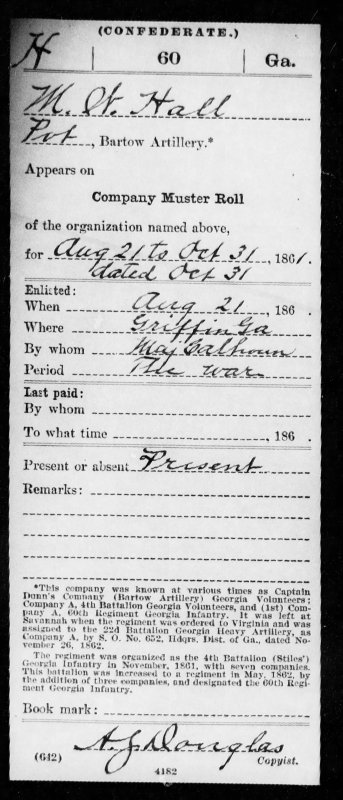 (CONFEDERATE.)
H | 60 | Ga.
M. W. Hall
Pvt, Bartow Artillery.*
Appears on
Company Muster Roll
of the organization named above,
for Aug 21 to Oct 31, 1861.
dated Oct 31
Enlisted:
When Aug 21, 186 .
Where Griffin Ga
By whom Maj Calhoun
Period The war
Last paid:
By whom
To what time , 186 .
Present or absent Present
Remarks:
*This company was known at various times as Captain
Dunn's Company (Bartow Artillery) Georgia Volunteers;
Company A, 4th Battalion Georgia Volunteers, and (1st) Com-
pany A, 60th Regiment Georgia Infantry. It was left at
Savannah when the regiment was ordered to Virginia and was
assigned to the 22d Battalion Georgia Heavy Artillery, as
Company A, by S. O. No. 652, Hdqrs. Dist. of Ga., dated No-
vember 26, 1862.
The regiment was organized as the 4th Battalion (Stiles')
Georgia Infantry in November, 1861, with seven companies.
This battalion was increased to a regiment in May, 1862, by
the addition of three companies, and designated the 60th Regi-
ment Georgia Infantry.
Book mark:
A. J. Douglas
(642) Copyist.
4182